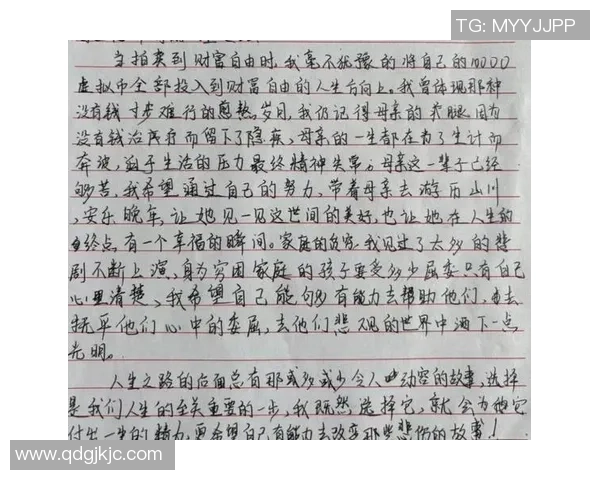 TG: MYYJJPP
当拍卖到财富自由时,我毫不犹豫的将自己的10000
虚拟币全部投入到财富自由的人生方向上。我曾体现那种
没有钱寸步难行的煎熬岁月,我仍记得母亲的 腿因为
没有钱治疗而留下了隐疾、母亲的一生都在为了生计而
奔波,迫于生活的压力最终精神失常。母亲这一辈子已经
够苦,我希望通过自己的努力,带着母亲去游历山川
,安乐晚年,让她见一见这世间的美好,也让她在人生的
终点有一个幸福的瞬间。家庭的贫穷,我见过了太多的悲
剧不断上演,身为穷困家庭的孩子要受多少屈委只有自己
心里清楚、我希望自己能够有能力去帮助他们,去
抚平他们心中的委屈,去他们悲观的世界中洒下一点
光明。
人生之路的后面总有那或多或少令人动容的故事,选择
是我们人生的至关重要的一步,我既然选择它,就会为他而
付出一生的精力,更希望自己有能力去改变那些悲伤的故事!
www.qdgjkjc.com